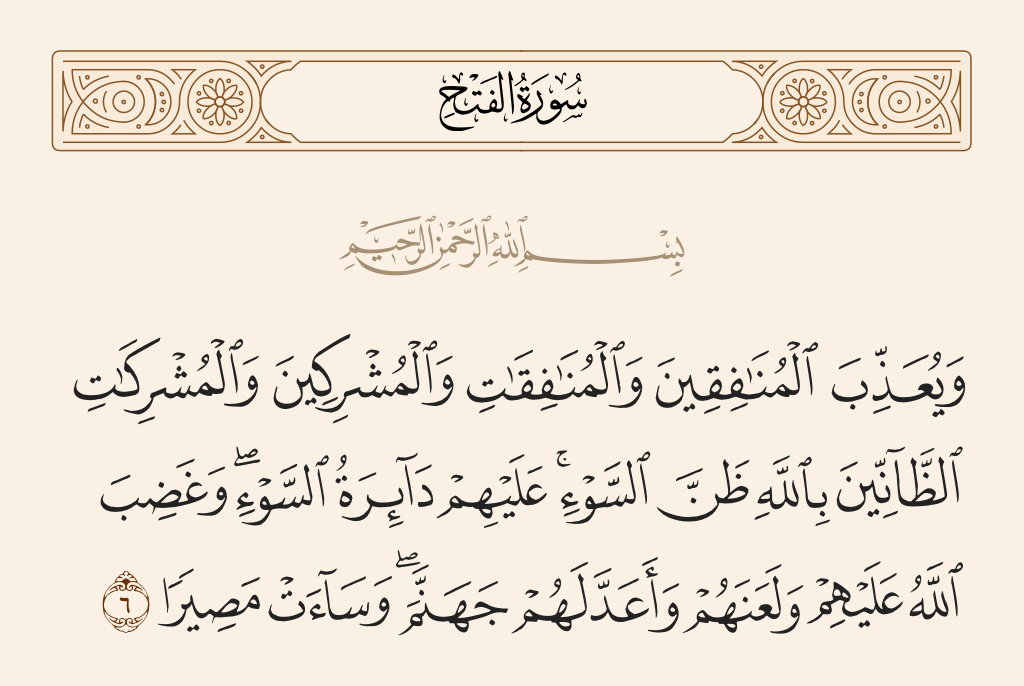 سُورَةُ الفَتْحِ
بِسْمِ ٱللَّهِ ٱلرَّحْمَٰنِ ٱلرَّحِيمِ
وَيُعَذِّبَ ٱلْمُنَٰفِقِينَ وَٱلْمُنَٰفِقَٰتِ وَٱلْمُشْرِكِينَ وَٱلْمُشْرِكَٰتِ
ٱلظَّآنِّينَ بِٱللَّهِ ظَنَّ ٱلسَّوْءِ ۚ عَلَيْهِمْ دَآئِرَةُ ٱلسَّوْءِ ۖ وَغَضِبَ
ٱللَّهُ عَلَيْهِمْ وَلَعَنَهُمْ وَأَعَدَّ لَهُمْ جَهَنَّمَ ۖ وَسَآءَتْ مَصِيرًا ٦